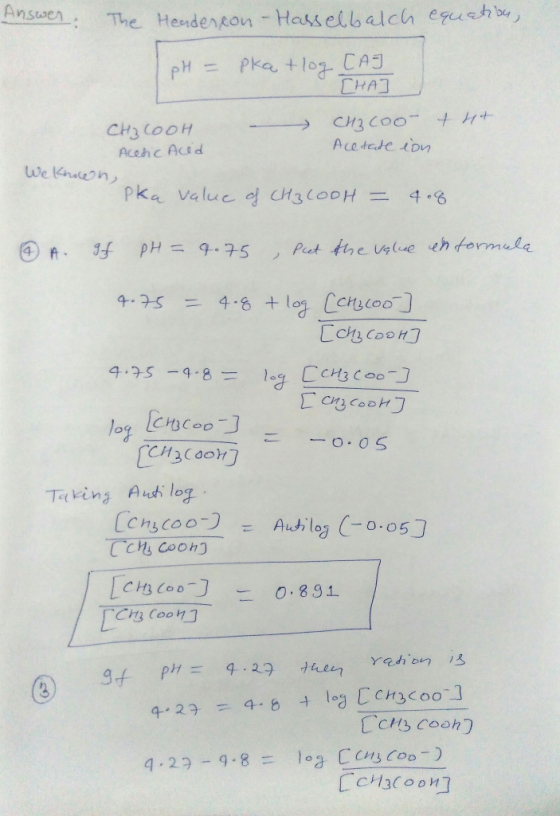 Answer: The Henderson-Hasselbalch equation,
pH = Pka + log [A-]/[HA]
CH3COOH ⟶ CH3COO- + H+
Acetic Acid Acetate ion
We known,
PKa value of CH3COOH = 4.8
④ A. If pH = 4.75, Put the value in formula
4.75 = 4.8 + log [CH3COO-]/[CH3COOH]
4.75 - 4.8 = log [CH3COO-]/[CH3COOH]
log [CH3COO-]/[CH3COOH] = -0.05
Taking Antilog.
[CH3COO-)/[CH3COOH] = Antilog (-0.05]
[CH3COO-]/[CH3COOH] = 0.891
③ If pH = 4.27 then ration is
4.27 = 4.8 + log [CH3COO-]/[CH3COOH]
4.27 - 4.8 = log [CH3COO-)/[CH3COOH]